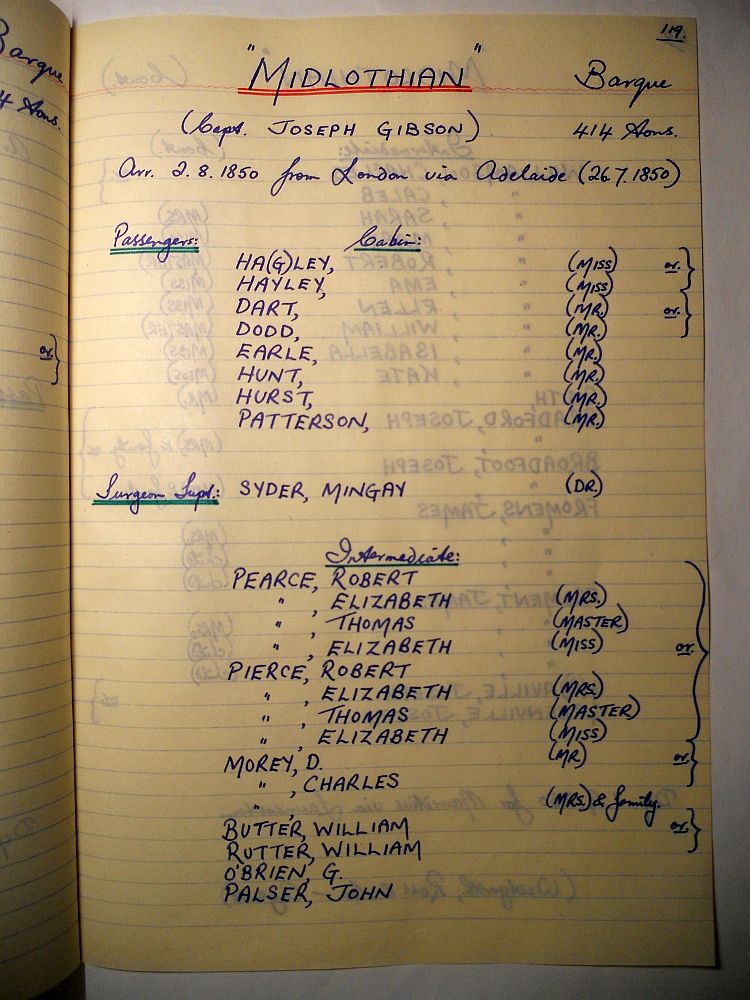 119.
"MIDLOTHIAN" Barque
(Capt. JOSEPH GIBSON) 414 tons.
Arr. 2.8.1850 from London via Adelaide (26.7.1850)
Passengers: Cabin:
HA(G)LEY, (MISS) or.
HAYLEY, (MISS)
DART, (MR.) or.
DODD, (MR.)
EARLE, (MR.)
HUNT, (MR.)
HURST, (MR.)
PATTERSON, (MR.)
Surgeon Supt.: SYDER, MINGAY (DR.)
Intermediate:
PEARCE, ROBERT
" , ELIZABETH (MRS.)
" , THOMAS (MASTER)
" , ELIZABETH (MISS) or.
PIERCE, ROBERT
" , ELIZABETH (MRS)
" , THOMAS (MASTER)
" , ELIZABETH (MISS)
MOREY, D. (MR) or.
" , CHARLES
" , (MRS.) & family.
BUTTER, WILLIAM or.
RUTTER, WILLIAM
O'BRIEN, G.
PALSER, JOHN
Barque
4 tons.
or.